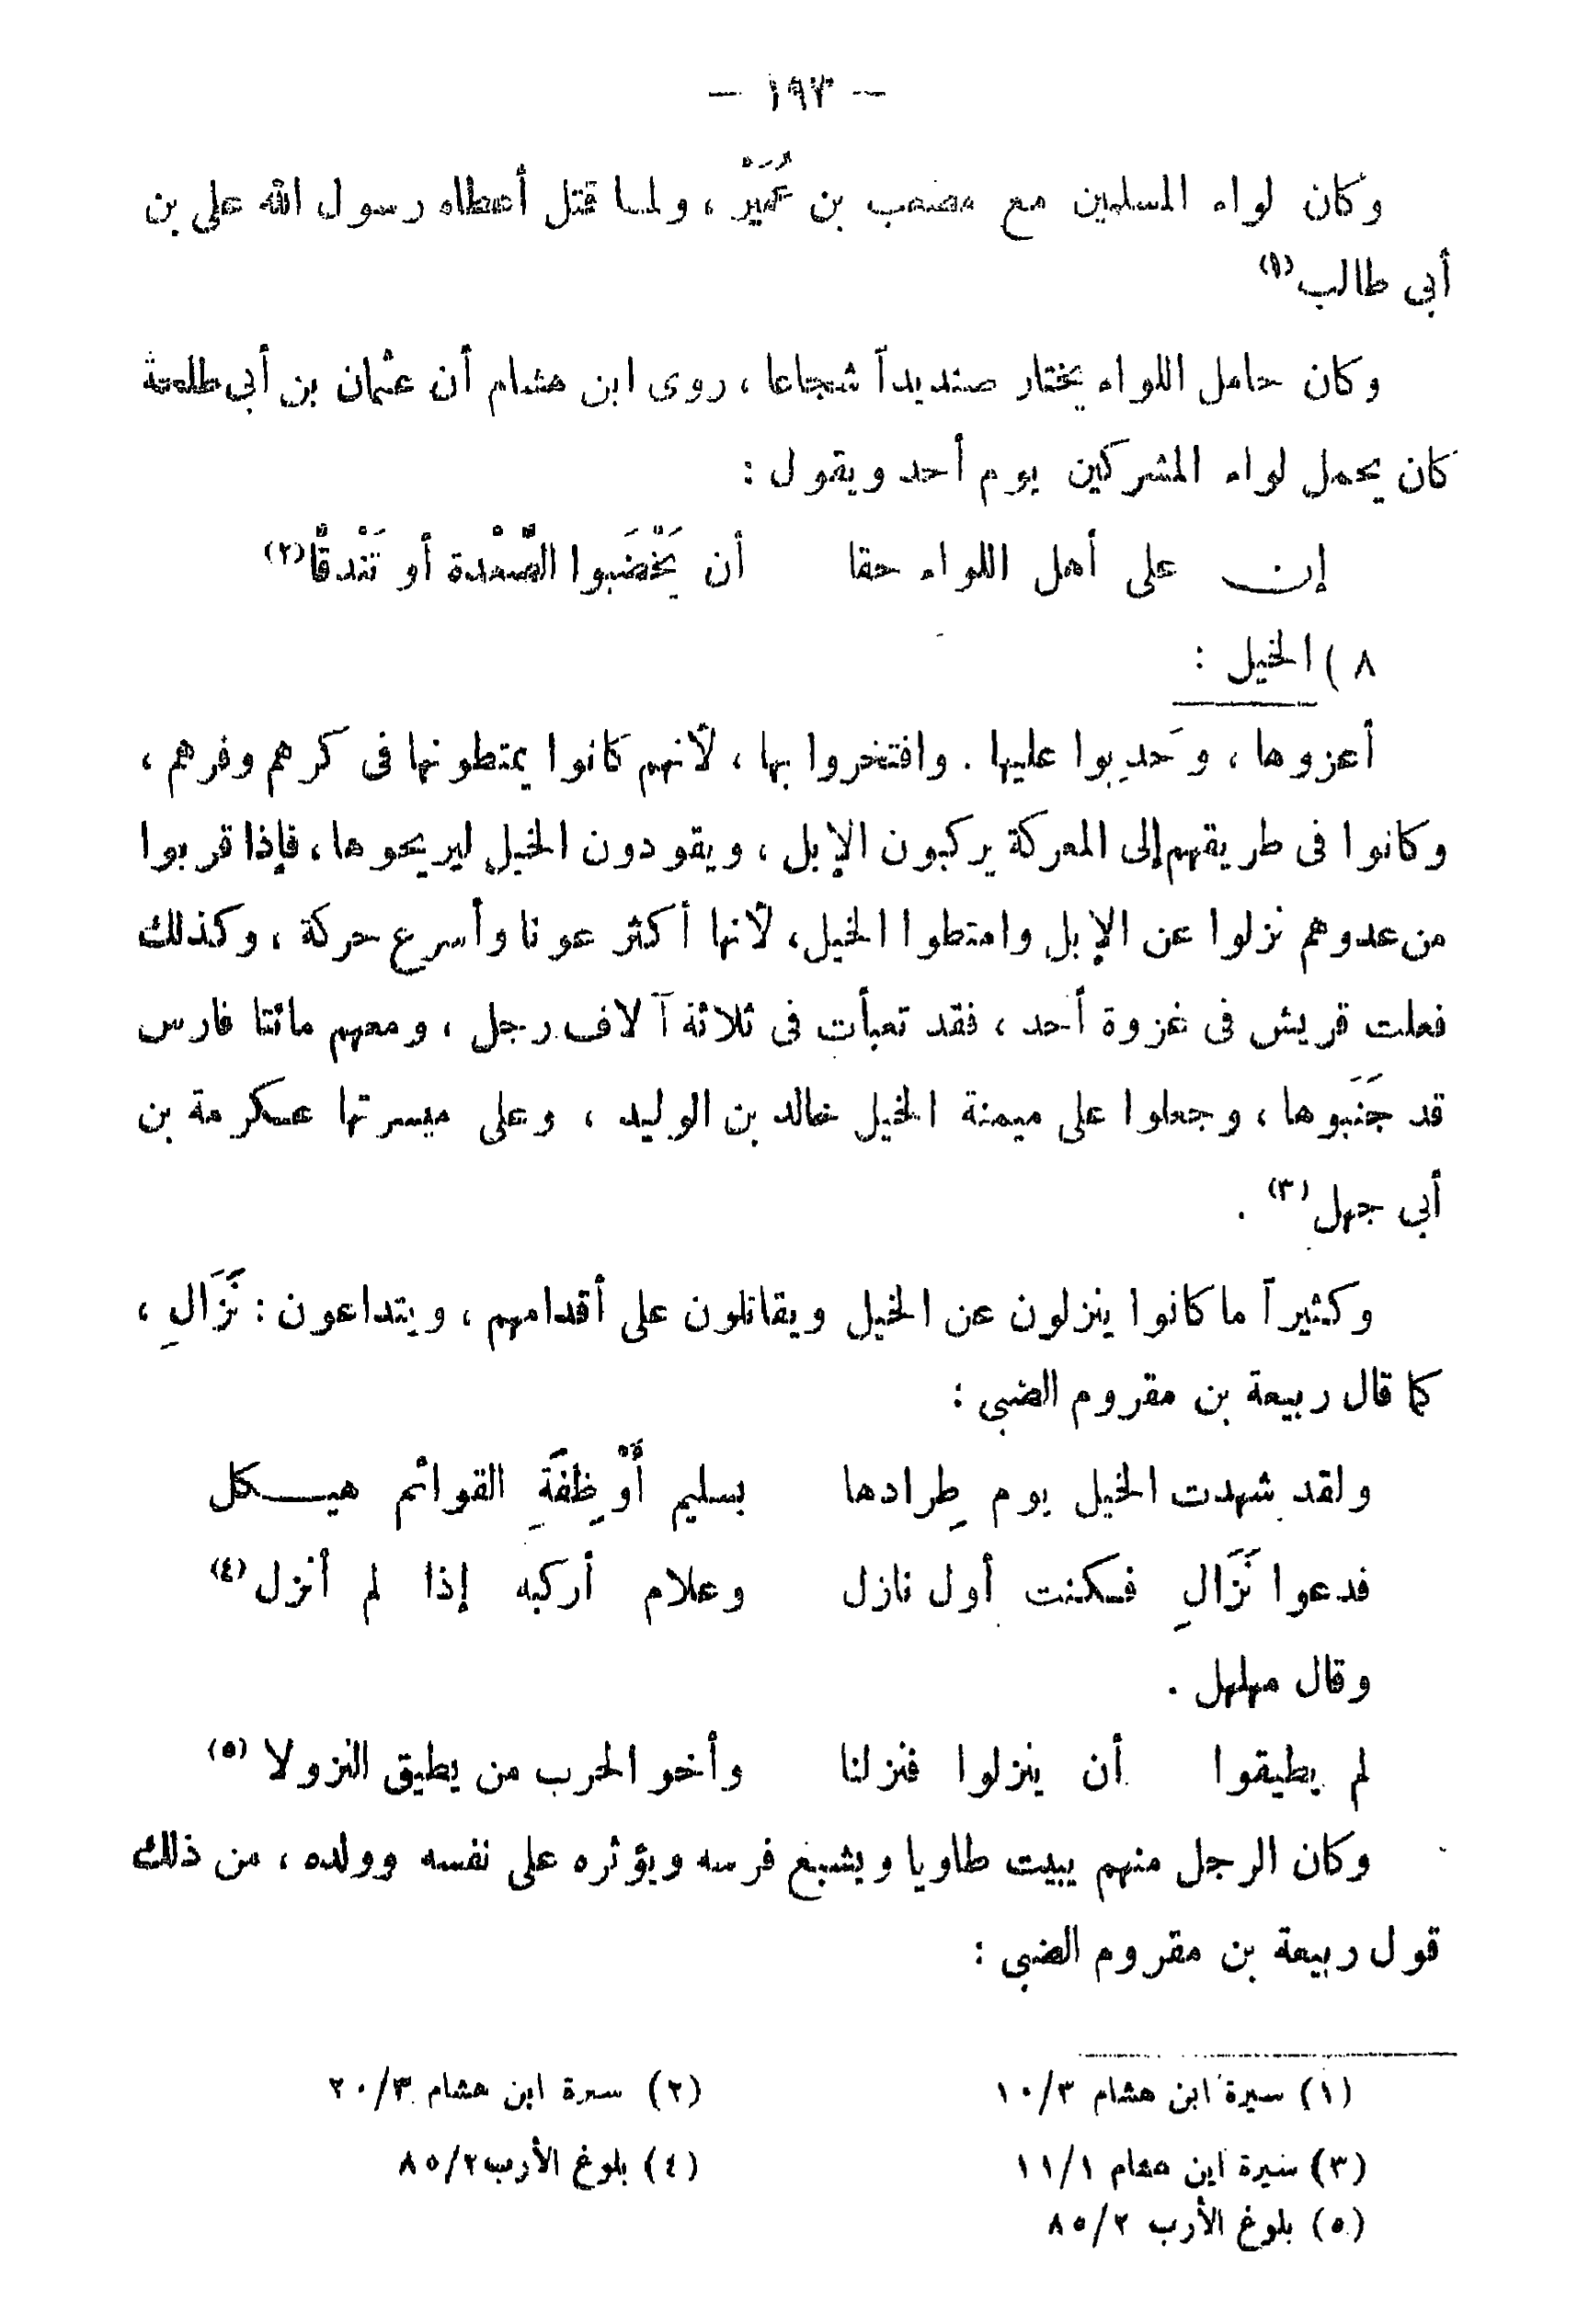 — ١٩٣ —
وكان لواء المسلمين مع مصعب بن عُمَيْر ، ولما قتل أعطاه رسول الله على بن
أبى طالب (١)
وكان حامل اللواء يختار صنديداً شجاعا ، روى ابن هشام أن عثمان بن أبى طلحة
كان يحمل لواء المشركين يوم أحد ويقول :
إن على أهل اللواء حقا أن يَخْضَبوا الصَّعْدة أو تَنْدقَّا (٢)
٨ ) الخيل :
أعزوها ، وحَدِبوا عليها . وافتخروا بها ، لأنهم كانوا يمتطونها فى كرهم وفرهم ،
وكانوا فى طريقهم إلى المعركة يركبون الإبل ، ويقودون الخيل ليريحوها ، فإذا قربوا
من عدوهم نزلوا عن الإبل وامتطوا الخيل ، لأنها أكثر عونا وأسرع حركة ، وكذلك
فعلت قريش فى غزوة أحد ، فقد تعبأت فى ثلاثة آلاف رجل ، ومعهم مائتا فارس
قد جَنَبوها ، وجعلوا على ميمنة الخيل خالد بن الوليد ، وعلى ميسرتها عكرمة بن
أبى جهل (٣) .
وكثيراً ما كانوا ينزلون عن الخيل ويقاتلون على أقدامهم ، ويتداعون : نَزَالِ ،
كما قال ربيعة بن مقروم الضبى :
ولقد شهدت الخيل يوم طِرادها بسليم أَوْظِفَةِ القوائم هيكل
فدعوا نَزَالِ فكنت أول نازل وعلام أركبه إذا لم أنزل (٤)
وقال مهلهل .
لم يطيقوا أن ينزلوا فنزلنا وأخو الحرب من يطيق النزولا (٥)
وكان الرجل منهم يبيت طاويا ويشبع فرسه ويؤثره على نفسه وولده ، من ذلك
قول ربيعة بن مقروم الضبى :
(١) سيرة ابن هشام ١٠/٣ (٢) سيرة ابن هشام ٢٠/٣
(٣) سيرة ابن هشام ١١/١ (٤) بلوغ الأرب ٨٥/٢
(٥) بلوغ الأرب ٨٥/٢